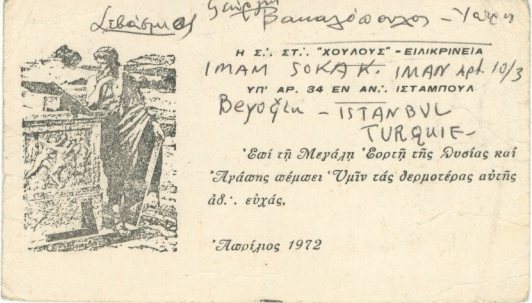 Σεβάσμιος Γεώργιος
Βακαλόπουλος -
Η Σ∴ ΣΤ∴ "ΧΟΥΛΟΥΣ" - ΕΙΛΙΚΡΙΝΕΙΑ
IMAM SOKAK. IMAN Apt. 10/3
ΥΠ' ΑΡ. 34 ΕΝ ΑΝ∴ ΙΣΤΑΜΠΟΥΛ
Beyoğlu - ISTANBUL
TURQUIE -
Ἐπί τῇ Μεγάλῃ Ἑορτῇ τῆς Θυσίας καί
Ἀγάπης πέμπει Ὑμῖν τάς θερμοτέρας αὐτῆς
ἀδ∴ εὐχάς,
Ἀπρίλιος 1972